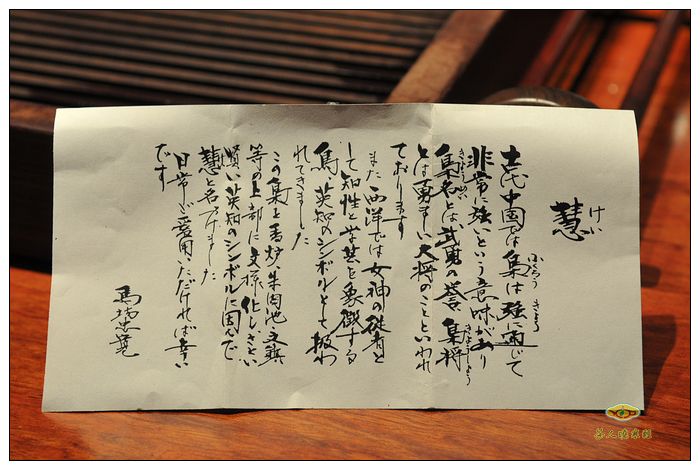 慧
けい
古代中国では梟は強に通じて
ふくろう きょう
非常に強いという意味があり
梟名とは武勇の誉、梟将
きょうめい きょうしょう
とは勇ましい大将のことといわれ
ております
また西洋では女神の従者と
して知性と学芸を象徴する
鳥、英知のシンボルとして扱わ
れてきました
この梟を香炉、朱肉池、文鎮
等の上部に文様化しささい
賢い英知のシンボルに因んで
慧と名づけました
日常ご愛用いただければ幸い
です
馬場忠寛